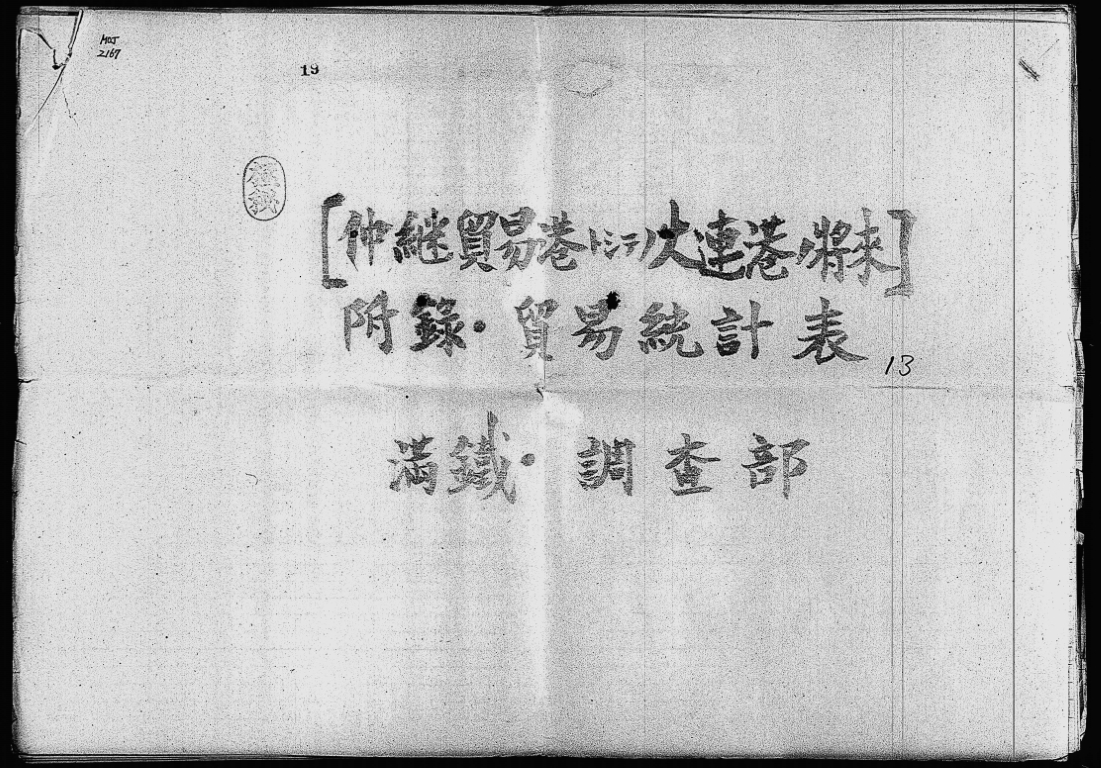 MOJ
2167
19
極秘
[仲継貿易港トシテノ大連港ノ將來]
附錄・貿易統計表
13
満鐵・調査部